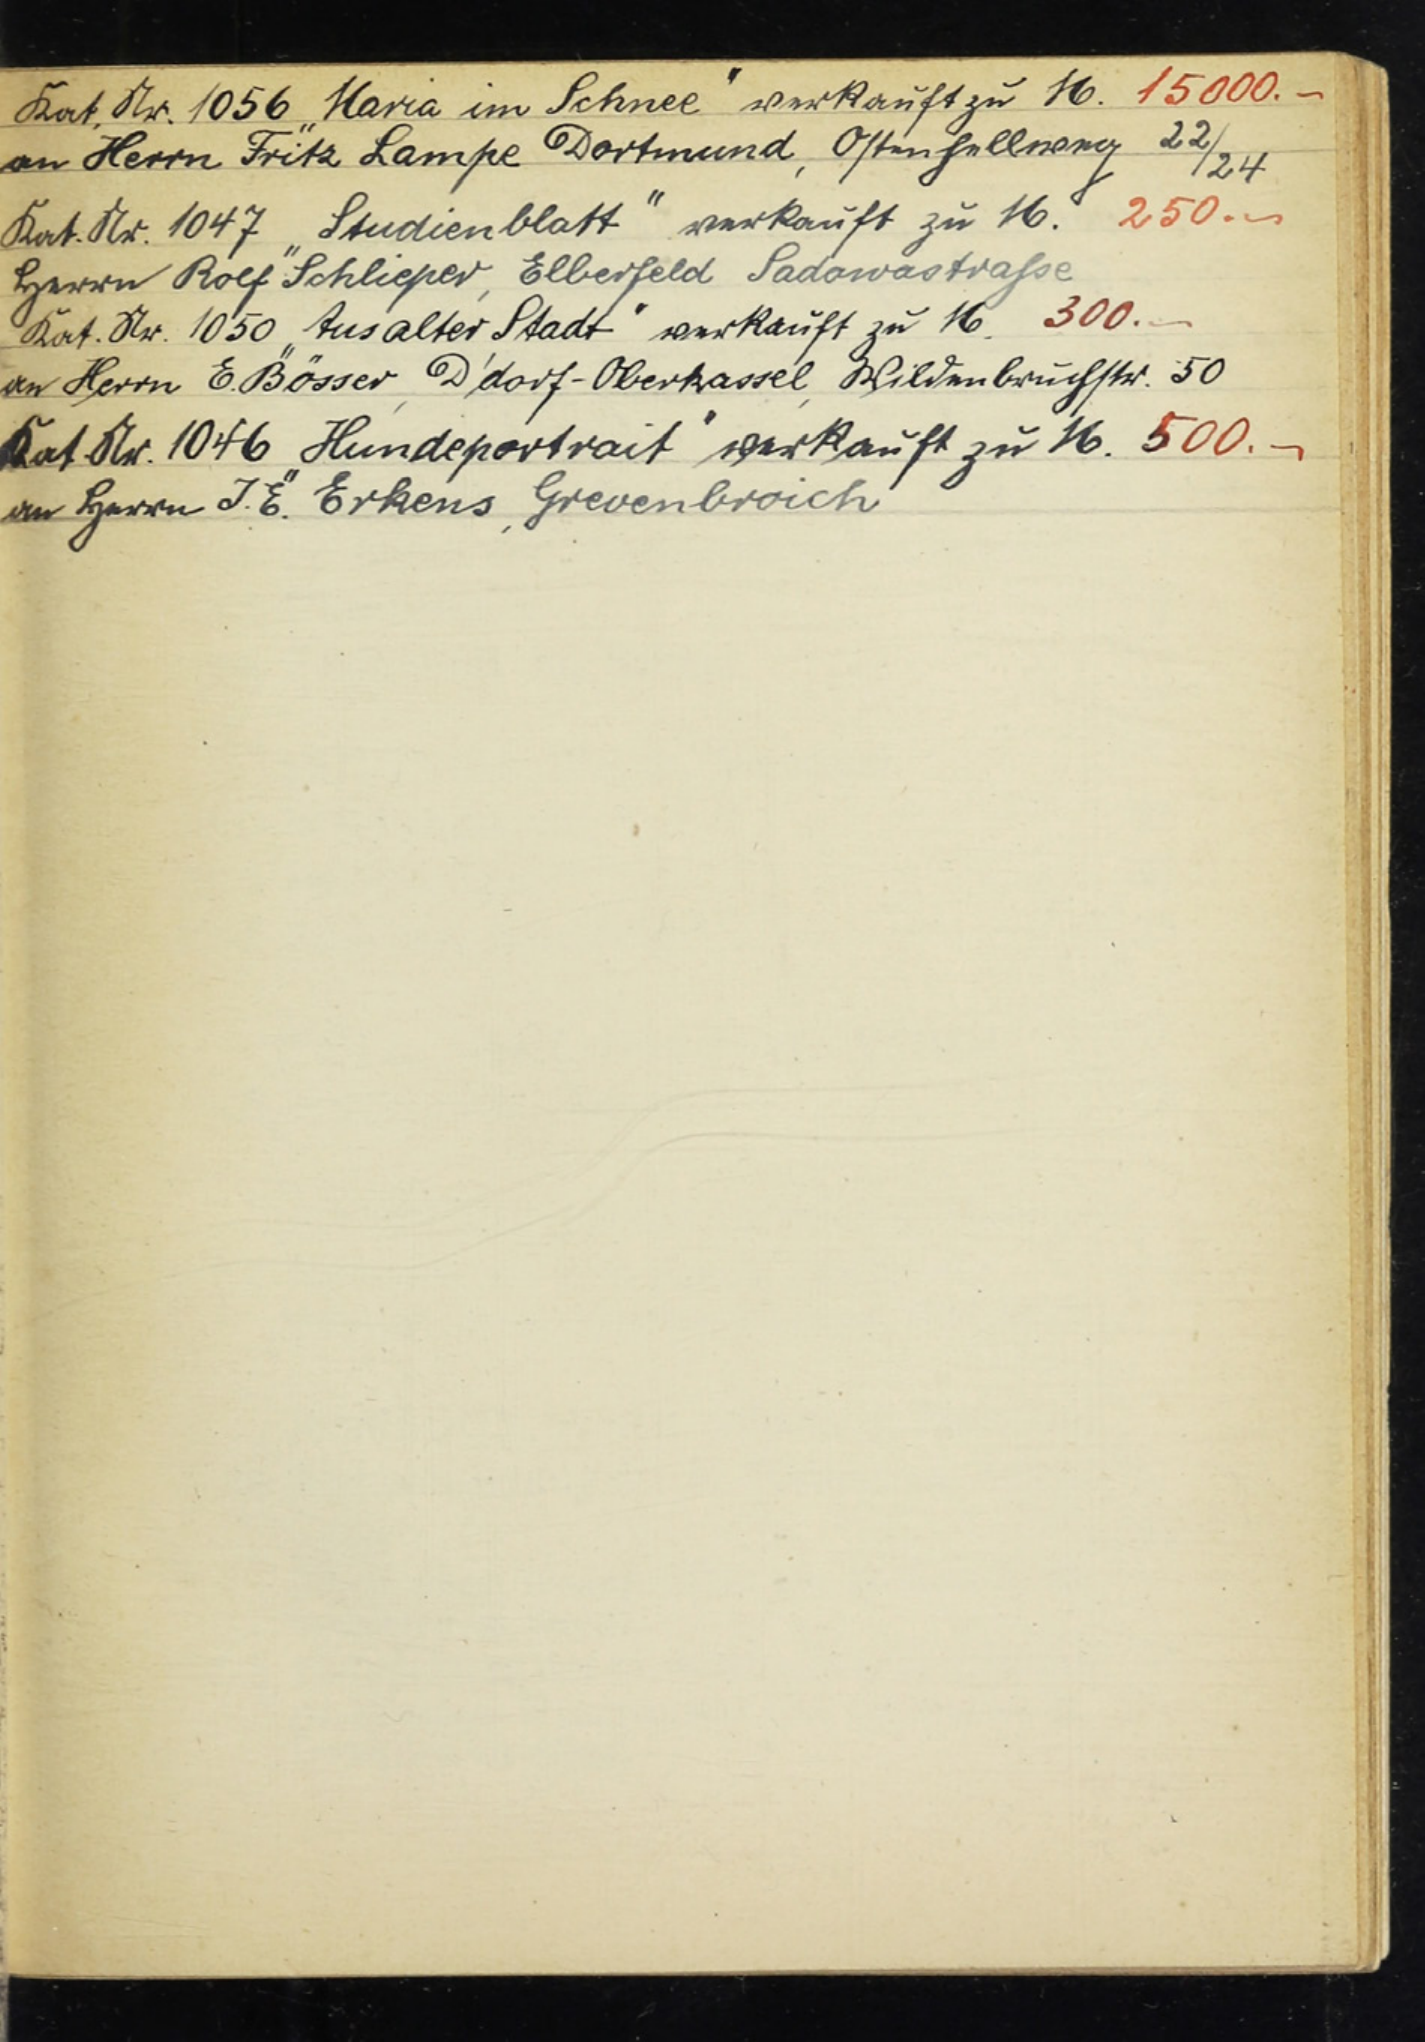 Kat. Nr. 1056 „Maria im Schnee" verkauft zu M. 15000.–
an Herrn Fritz Lampe Dortmund, Ostenhellweg 22/24
Kat. Nr. 1047 „Studienblatt" verkauft zu M. 250.–
Herrn Rolf Schlieper, Elberfeld Sadowastrasse
Kat. Nr. 1050 „Aus alter Stadt" verkauft zu M. 300.–
an Herrn E. Bösser, D'dorf-Oberkassel, Wildenbruchstr. 50
Kat. Nr. 1046 „Hundeportrait" verkauft zu M. 500.–
an Herrn J. E. Erkens, Grevenbroich